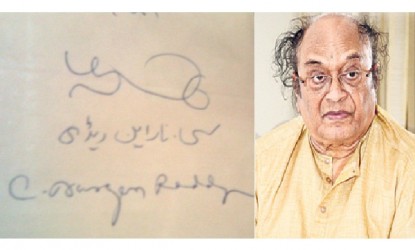 سی نارائن ریڈی
C. Narayan Reddy